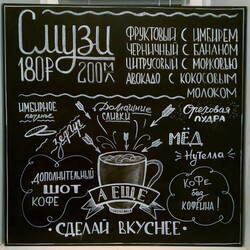 Смузи
180₽ 200мл
ФРУКТОВЫЙ С ИМБИРЕМ
ЧЕРНИЧНЫЙ С БАНАНОМ
ЦИТРУСОВЫЙ С МОРКОВЬЮ
АВОКАДО С КОКОСОВЫМ
МОЛОКОМ
ИМБИРНОЕ
печенье
Домашние
СЛИВКИ
Ореховая
ПУДРА
Зефир
МЁД
Нутелла
ДОПОЛНИТЕЛЬНЫЙ
ШОТ
КОФЕ
А ЕЩЕ
КОФЕ
без
КОФЕИНА!
· СДЕЛАЙ ВКУСНЕЕ ·